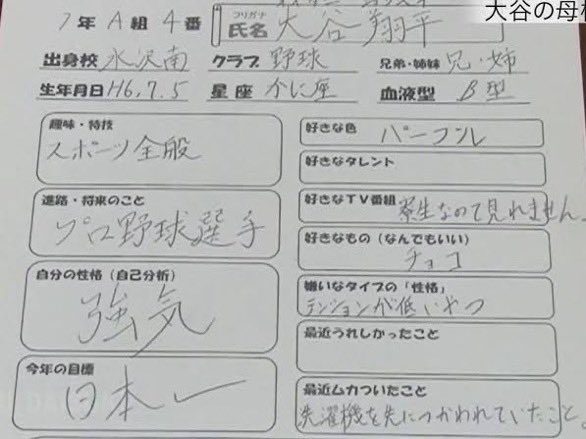 大谷の母校
1年 A組 4番
フリガナ
氏名 大谷翔平
出身校 水沢南 クラブ 野球 兄弟・姉妹 兄・姉
生年月日 H6.7.5 星座 かに座 血液型 B型
趣味・特技
スポーツ全般
進路・将来のこと
プロ野球選手
自分の性格(自己分析)
強気
今年の目標
日本一
好きな色 パープル
好きなタレント
好きなTV番組 寮生なので見れません。
好きなもの(なんでもいい)
チョコ
嫌いなタイプの「性格」
テンションが低いやつ
最近うれしかったこと
最近ムカついたこと
洗濯機を先につかわれていたこと